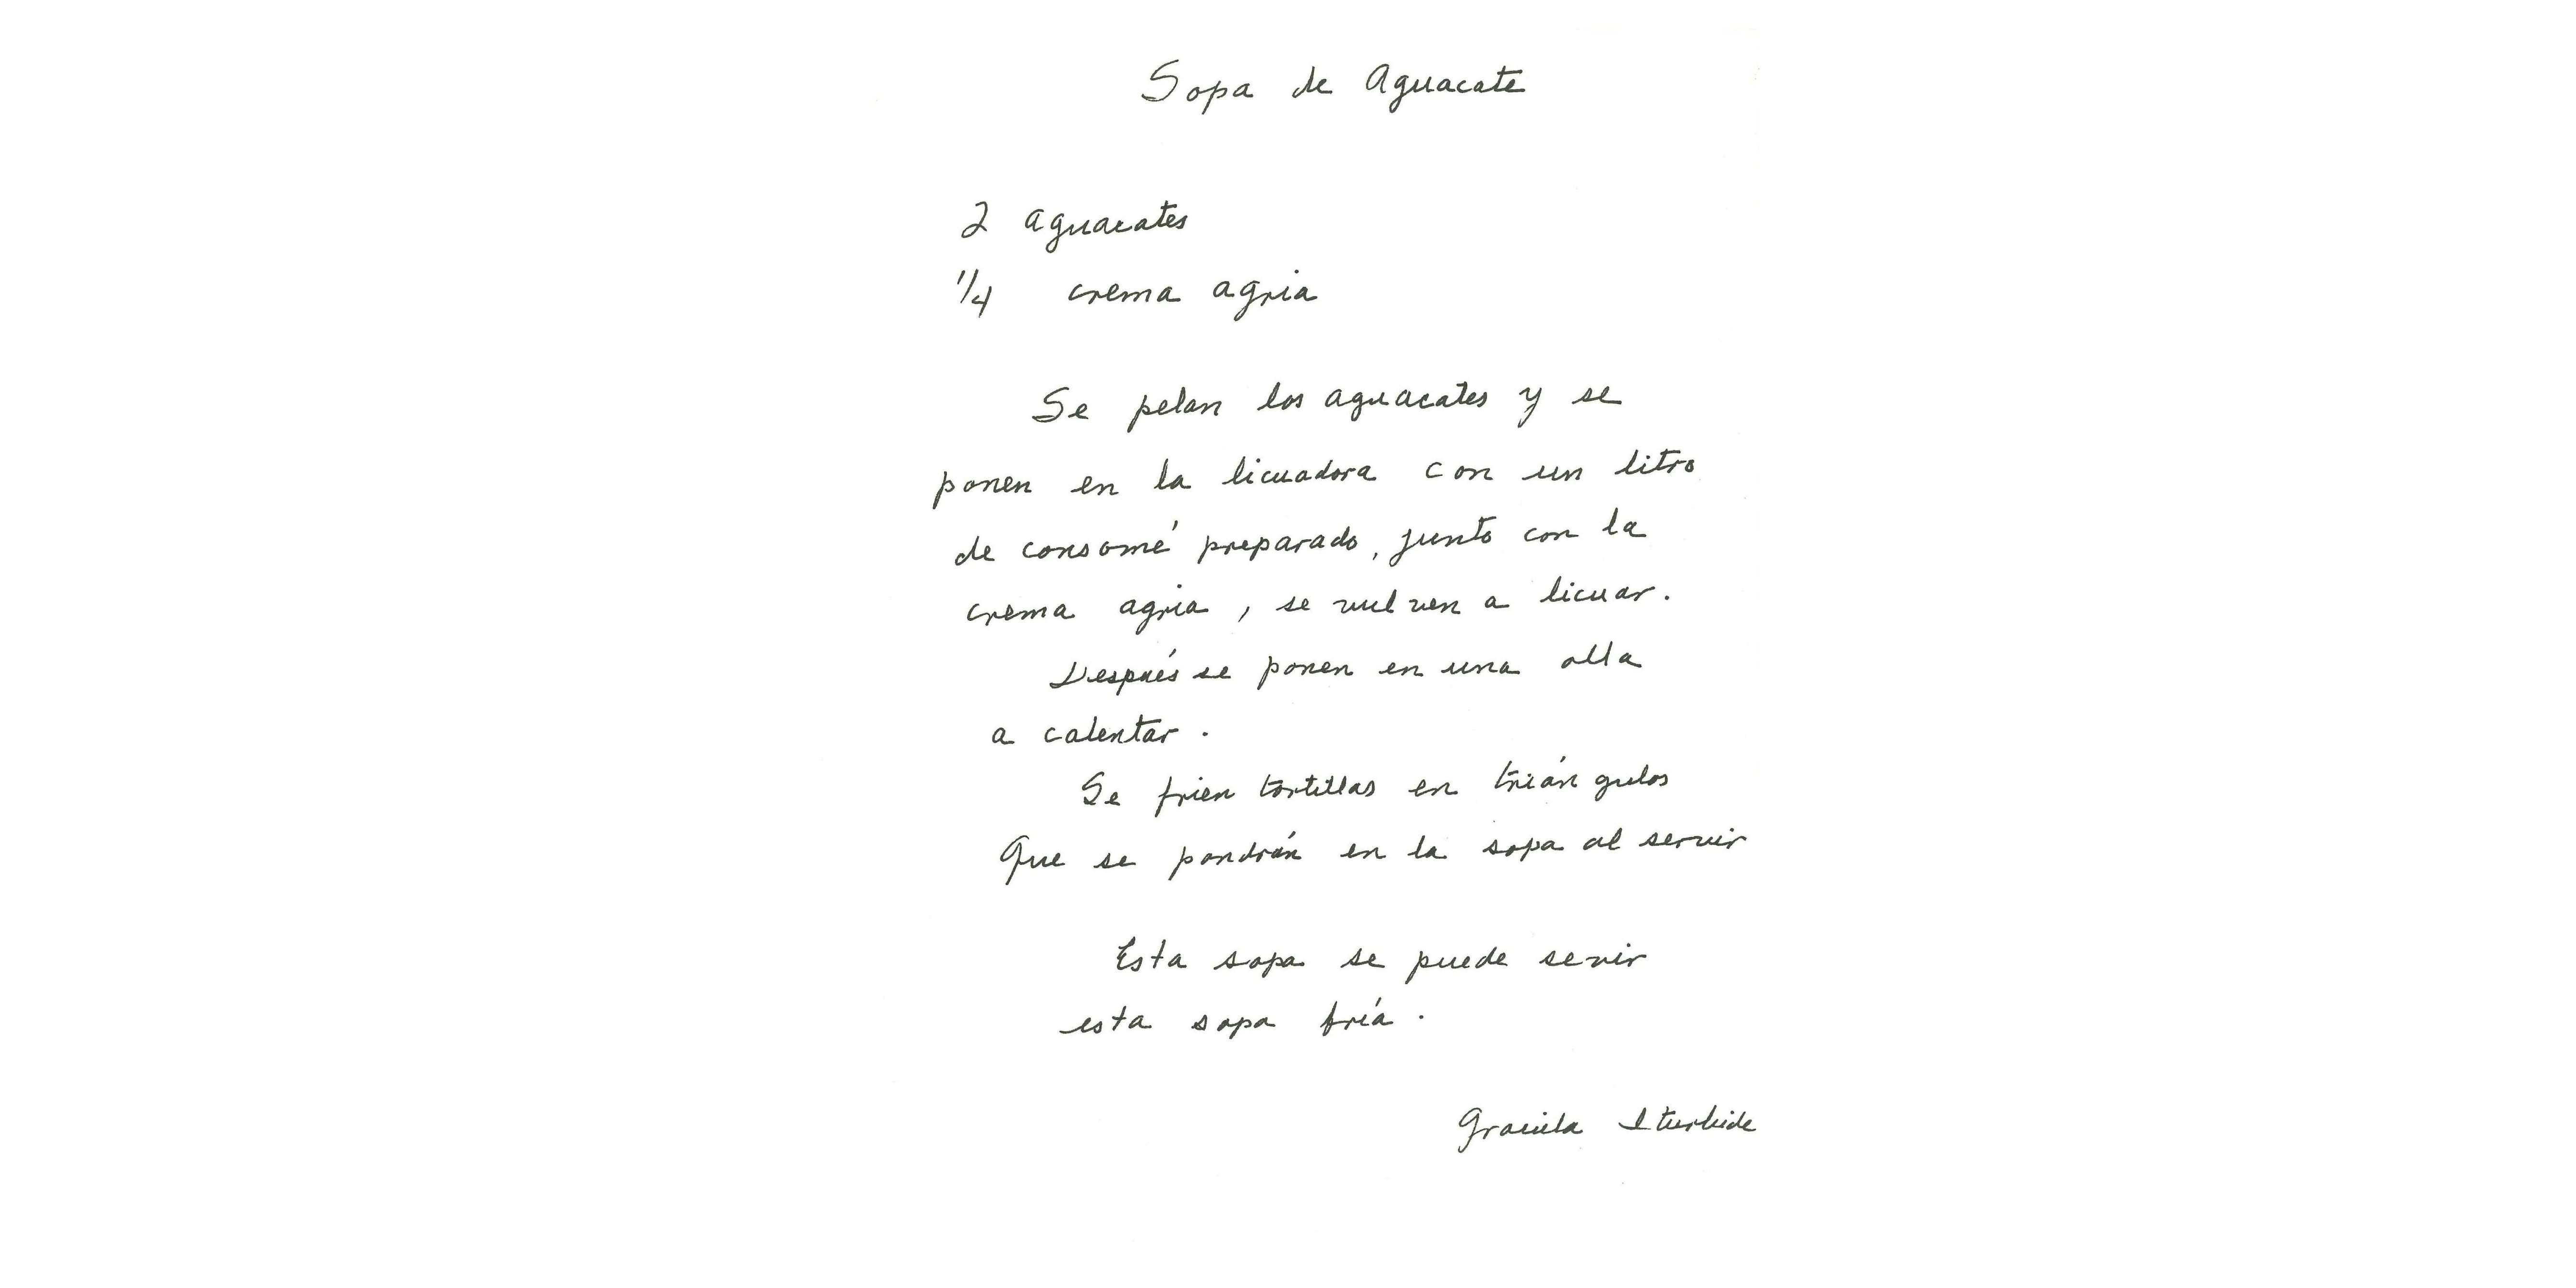 Sopa de Aguacate
2 aguacates
1/4 crema agria
Se pelan los aguacates y se
ponen en la licuadora con un litro
de consomé preparado, junto con la
crema agria, se vuelven a licuar.
Después se ponen en una olla
a calentar.
Se frien tortillas en triángulos
Que se pondrán en la sopa al servir
Esta sopa se puede servir
esta sopa fría.
Graciela Iturbide